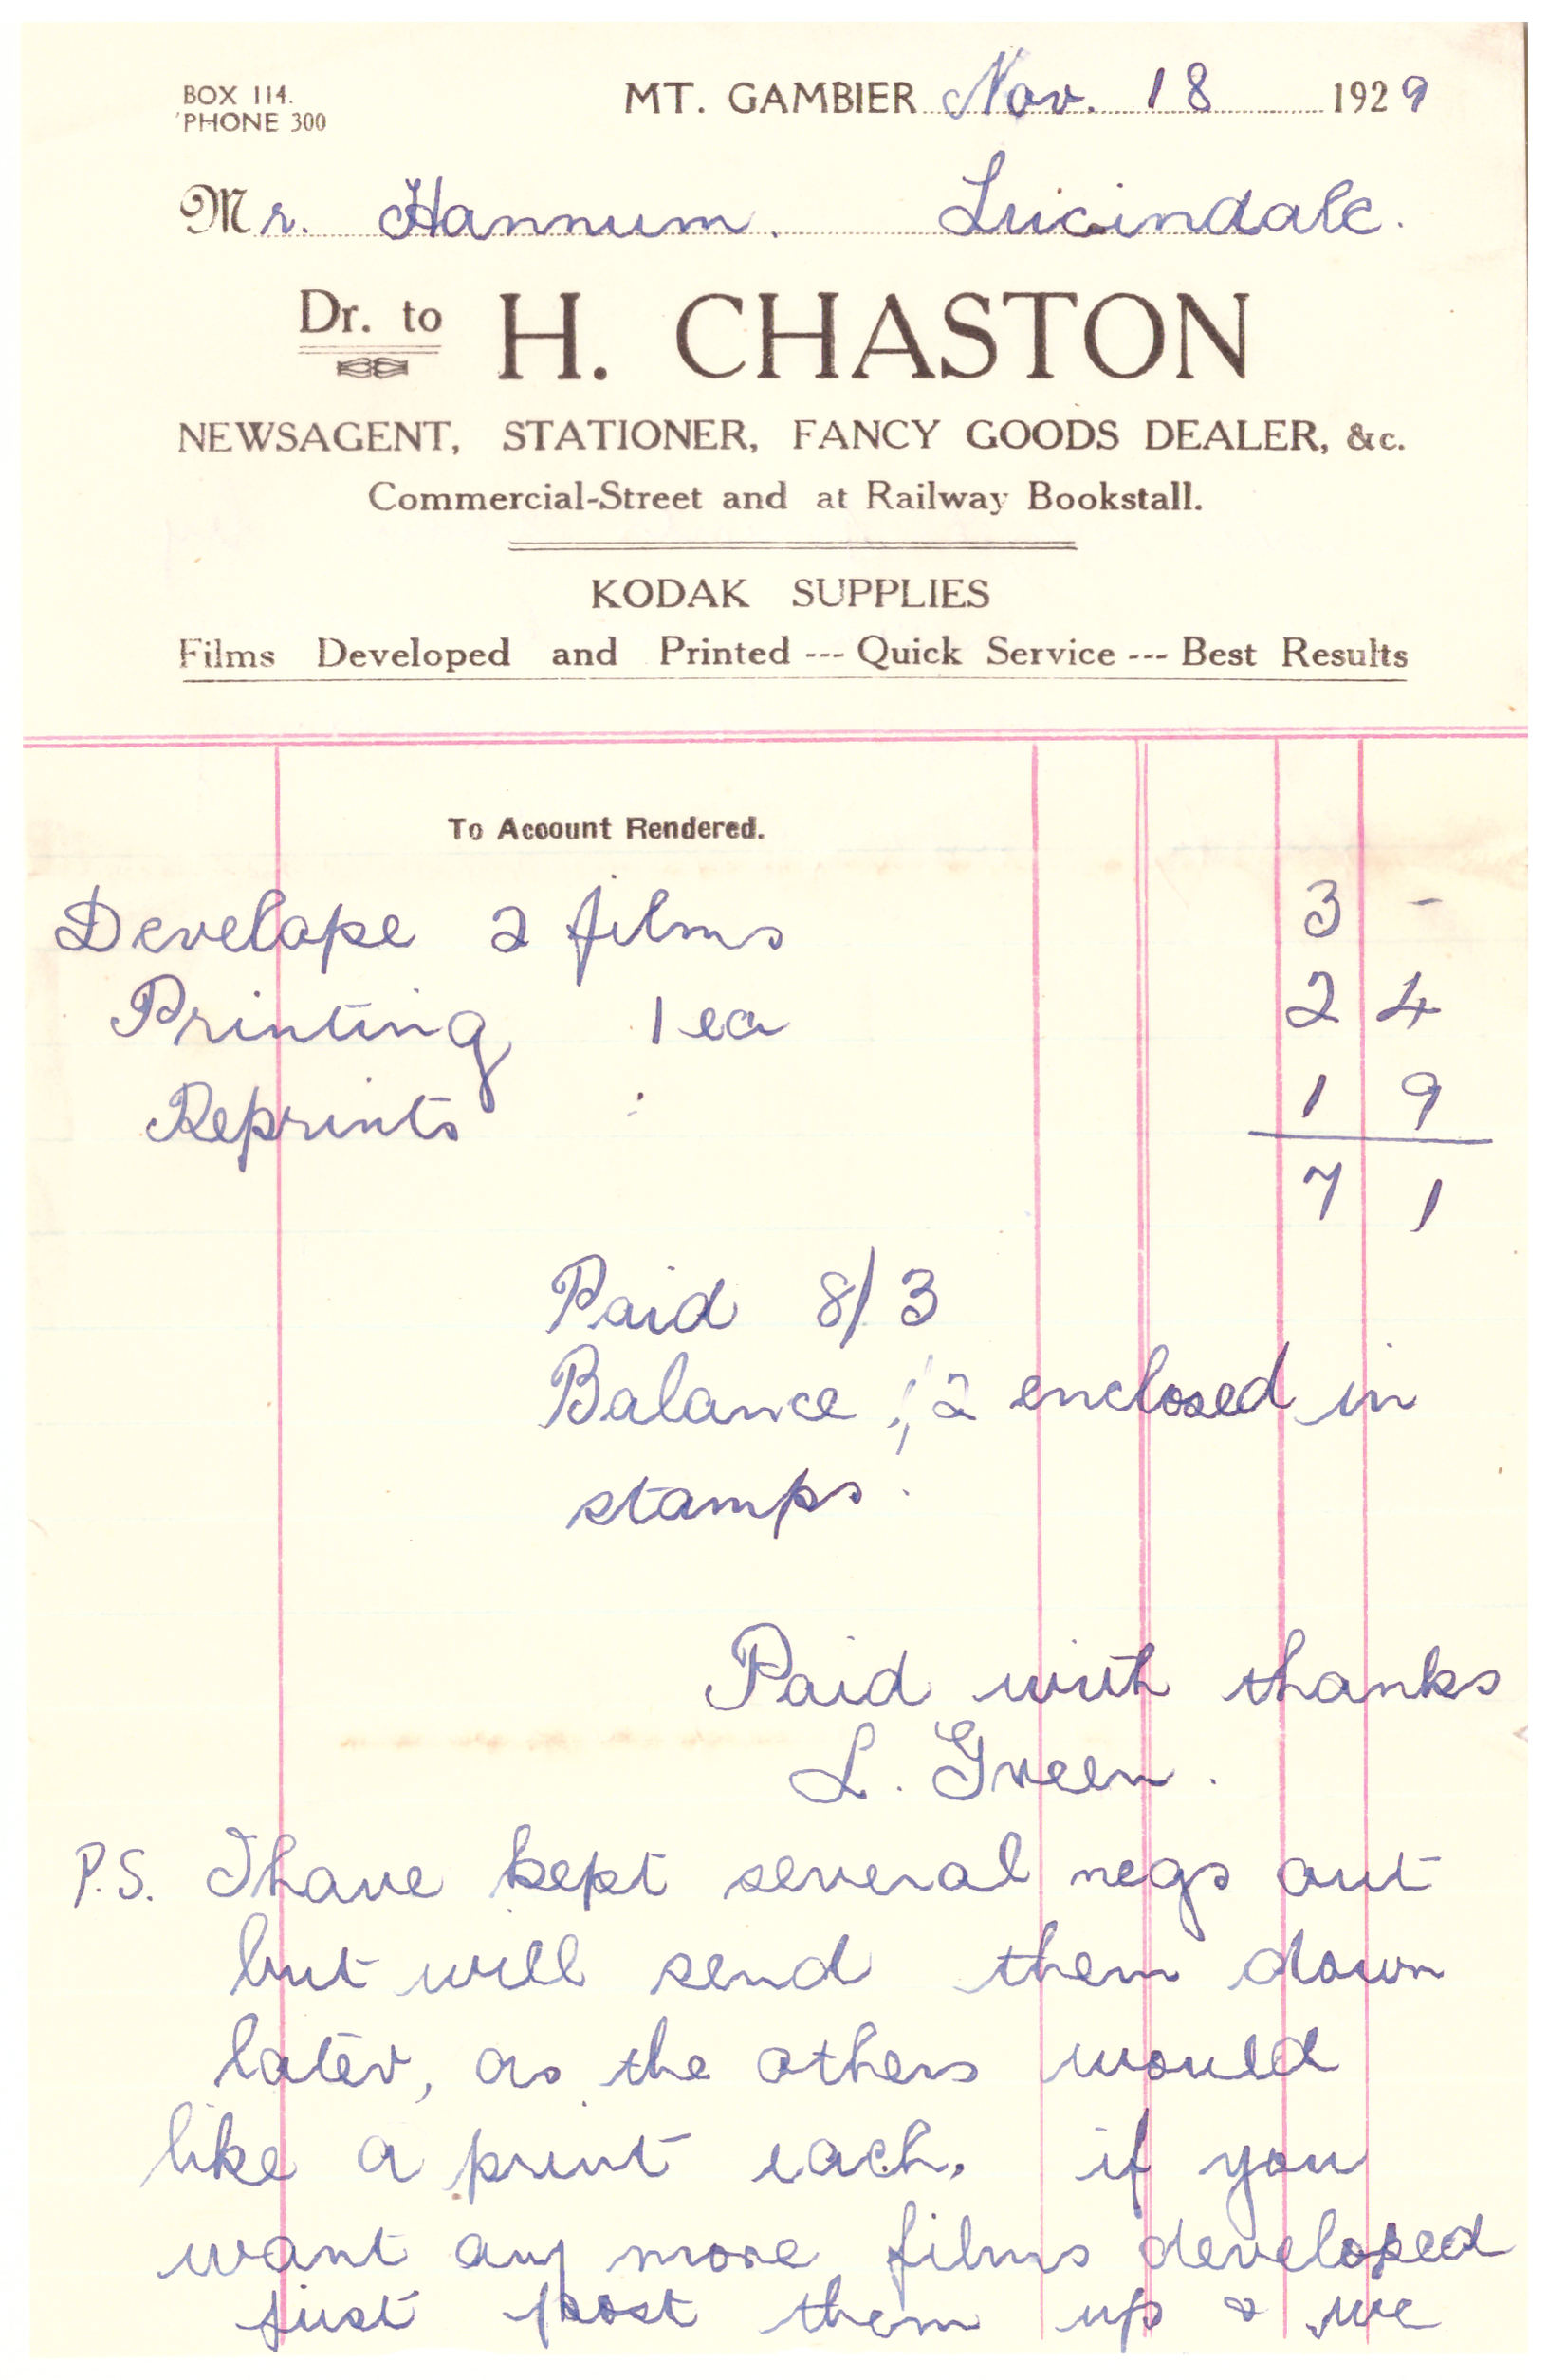 BOX 114.
'PHONE 300
MT. GAMBIER Nov. 18 1929
Mr. Hannum. Lucindale.
Dr. to H. CHASTON
NEWSAGENT, STATIONER, FANCY GOODS DEALER, &c.
Commercial-Street and at Railway Bookstall.
KODAK SUPPLIES
Films Developed and Printed --- Quick Service --- Best Results
To Account Rendered.
Develope 2 films 3 -
Printing 1 ea 2 4
Reprints 1 9
7 1
Paid 8/3
Balance 1/2 enclosed in
stamps.
Paid with thanks
L. Green.
P.S. I have kept several negs out
but will send them down
later, as the others would
like a print each. if you
want any more films developed
just post them up & we